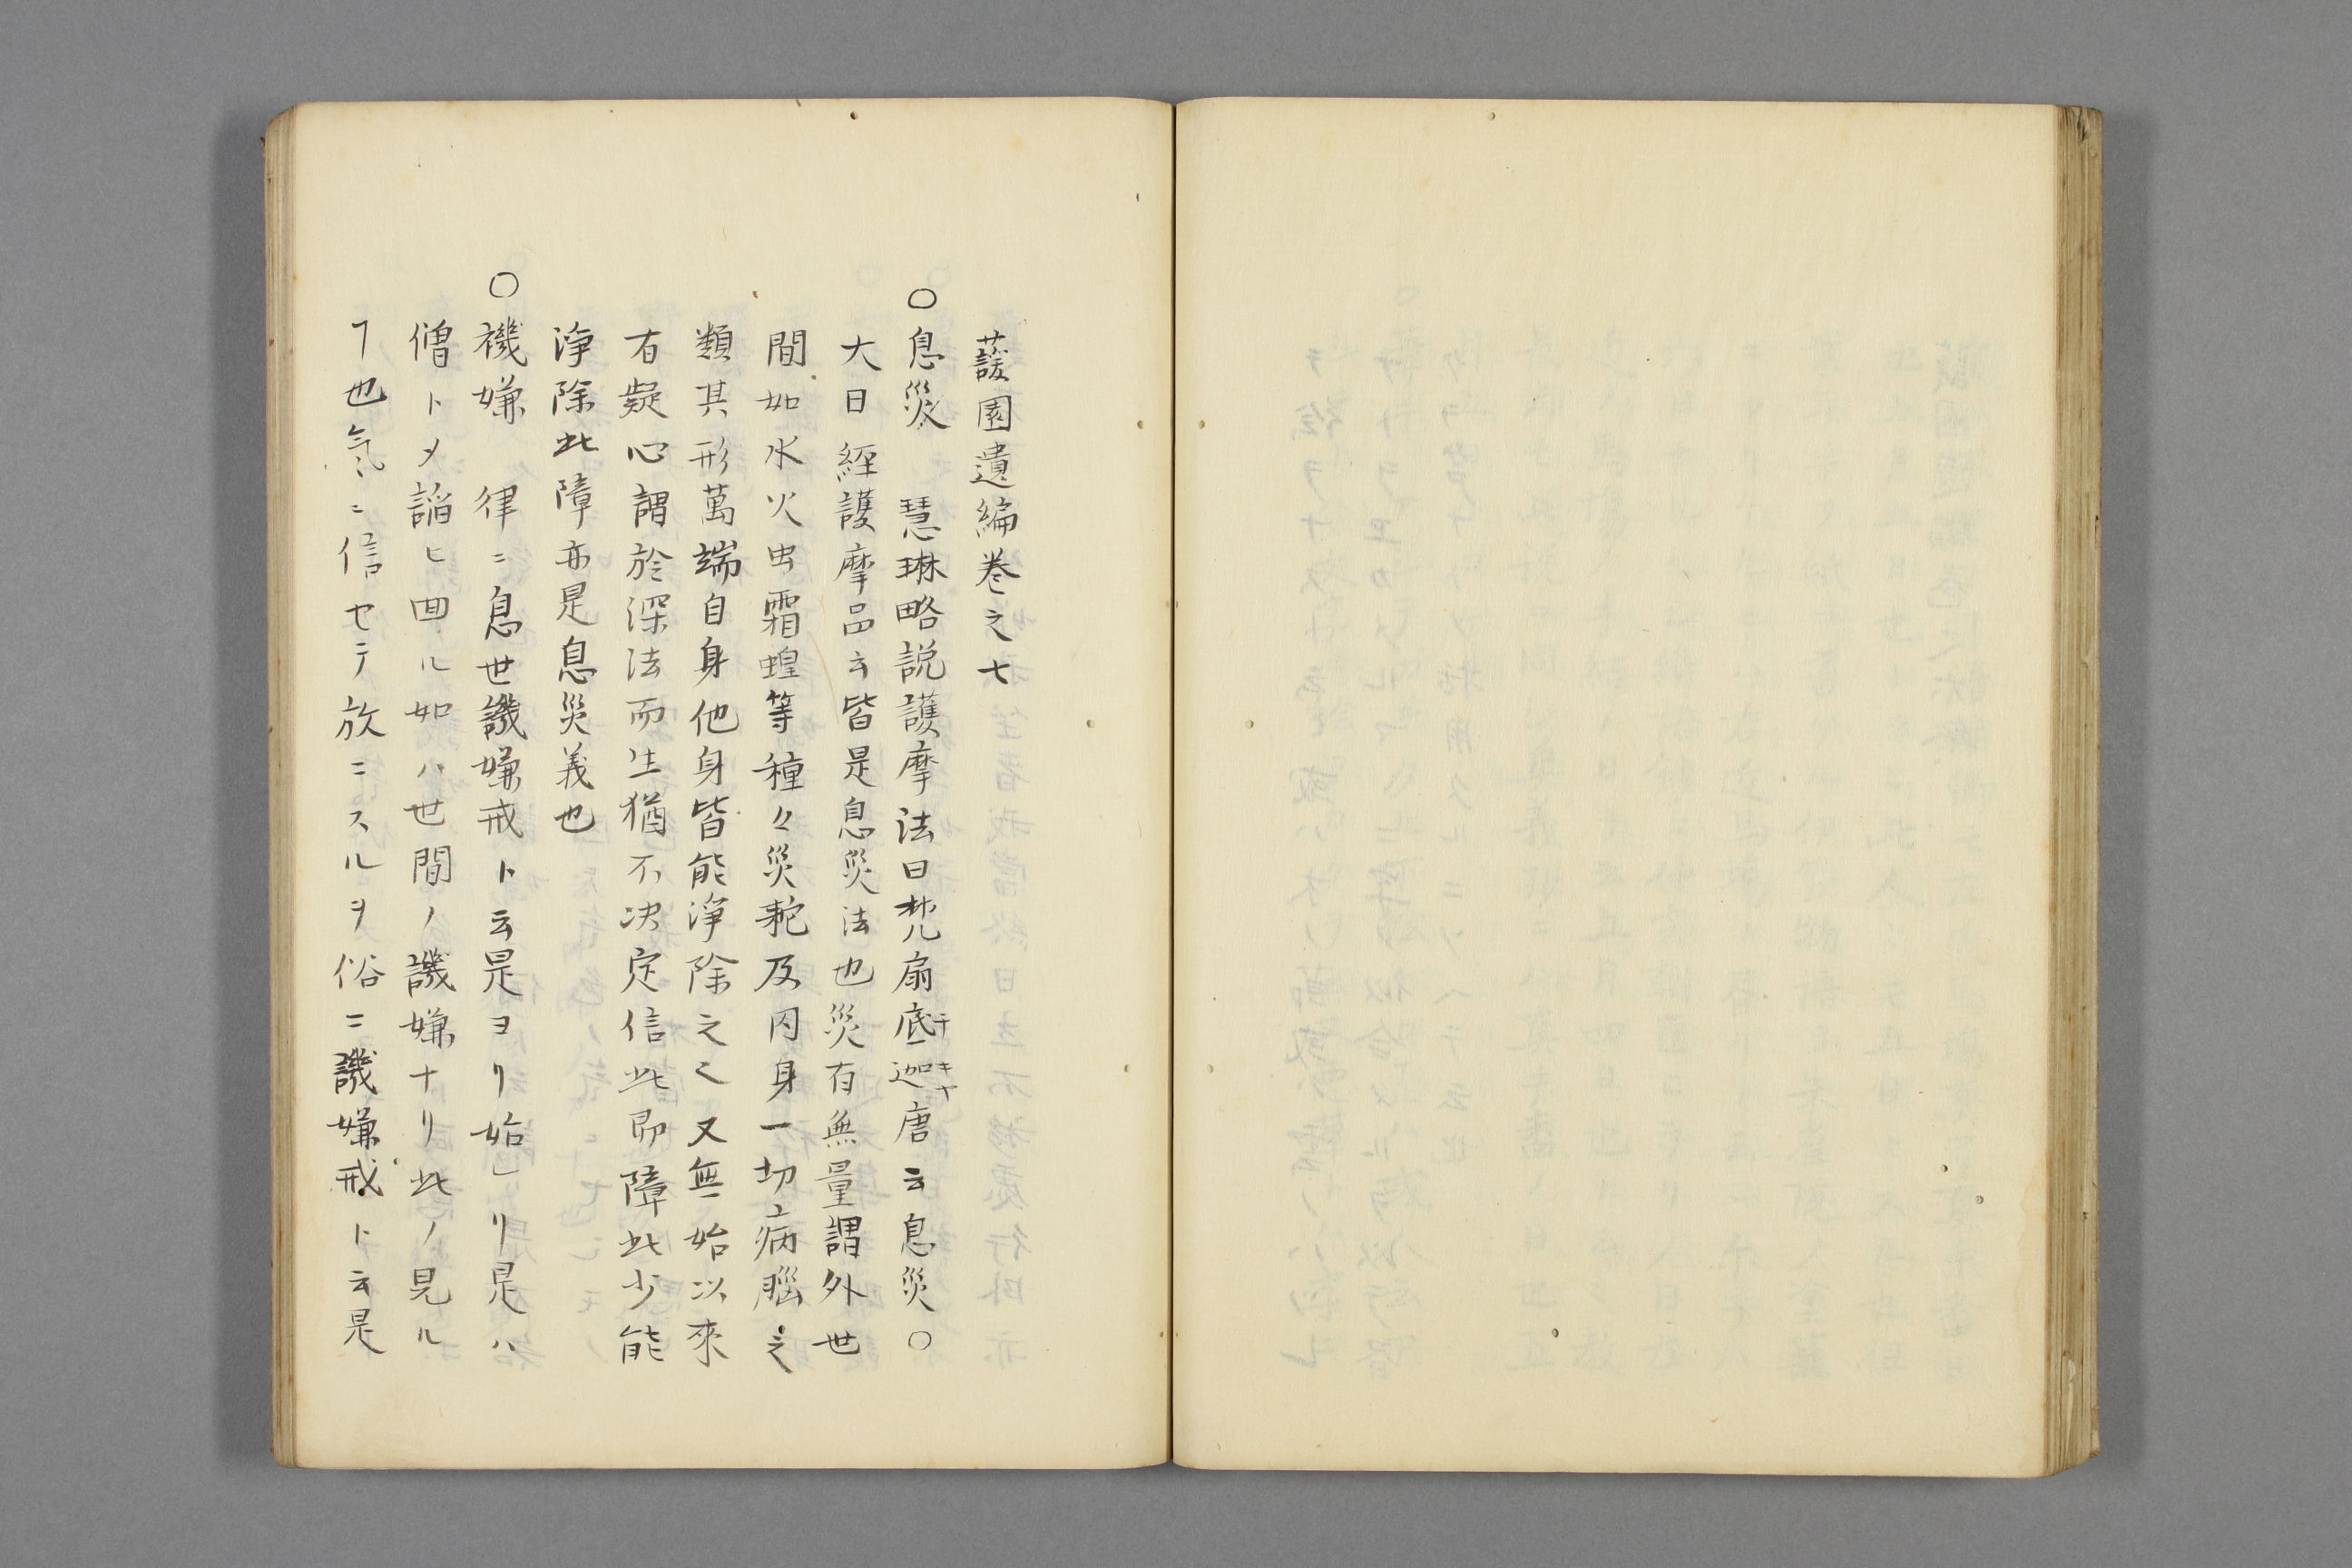 蘐園遺編巻之七
〇息災　慧琳略説護摩法曰梵扇底迦唐云息災〇
チキヤ
大日経護摩品云皆是息災法也災有無量謂外世
間如水火虫霜蝗等種々災耗及内身一切病惱之
類其形萬端自身他身皆能淨除之〻又無始以來
有疑心謂於深法而生猶不决定信此即障此少能
淨除此障亦是息災義也
〇機嫌　律ニ息世譏嫌戒ト云是ヨリ始リ是ハ
僧トメ謟ヒ回ル如ハ世間ノ譏嫌ナリ此ノ見ル
ヿ也氣ニ信セテ放ニスルヲ俗ニ譏嫌戒ト云是